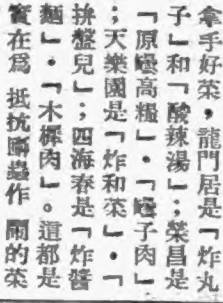 拿手好菜，龍門居是「炸丸
子」和「酸辣湯」；榮昌是
「原㽍高糧」．「㽍子肉」
；天樂園是「炸和菜」．「
拚盤兒」；四海春是「炸醬
麵」．「木樨肉」。這都是
實在爲 抵抗 蟲作 鬧的菜